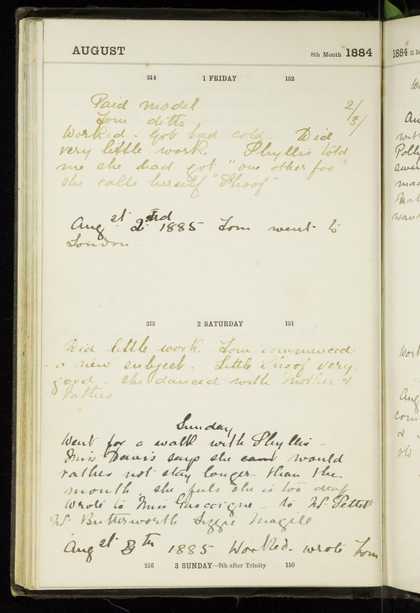 AUGUST 8th Month 1884
214 1 FRIDAY 152
Paid model 2/
Tom ditto /3/
Worked. Got bad cold. Did
very little work. Phyllis told
me she had got "one other foo"
she calls herself "Phoof"
Aug st 2nd 1885 Tom went to
London
215 2 SATURDAY 151
Did little work. Tom commenced
a new subject. Little Phoof very
good. She danced with mother &
father
Sunday
Went for a walk with Phyllis -
Miss Davis says she would
rather not stay longer than the
month she feels she is too deaf
Wrote to Miss Gascoigne - to W Pettet
W Butterworth Lizzie Magill
Aug st 8th 1885 Worked. wrote Tom
216 3 SUNDAY—8th after Trinity 150
1884